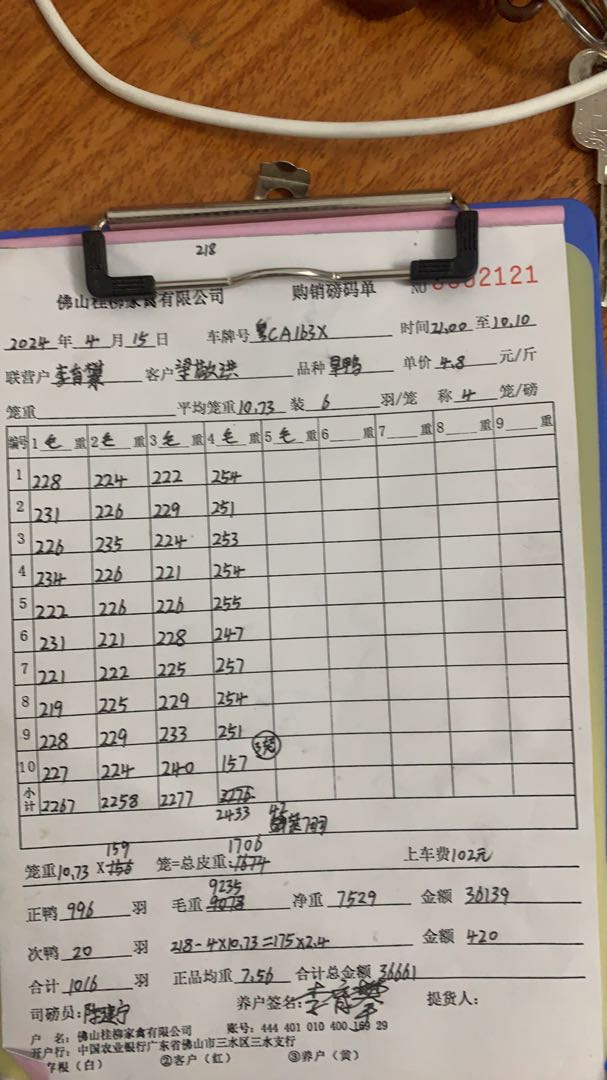 218
佛山桂柳家禽有限公司 购销磅码单 NO 0002121
2024 年 4 月 15 日 车牌号 粤CA163X 时间 21.00 至 10.10
联营户 客户 品种 旱鸭 单价 4.8 元/斤
笼重 平均笼重 10.73 装 6 羽/笼 称 4 笼/磅
编号 1 毛 重 2 毛 重 3 毛 重 4 毛 重 5 毛 重 6 重 7 重 8 重 9 重
1 228 224 222 254
2 231 226 229 251
3 226 235 224 253
4 234 226 221 254
5 222 226 226 255
6 231 221 228 247
7 221 222 225 257
8 219 225 229 254
9 228 229 233 251
10 227 224 240 157 3笼
小计 2267 2258 2277 2276
2433 42
159 1706
笼重 10.73 X 156 笼=总皮重: 1674 上车费 102元
9235
正鸭 996 羽 毛重 9078 净重 7529 金额 36139
次鸭 20 羽 218-4×10.73=175×2.4 金额 420
合计 1016 羽 正品均重 7.56 合计总金额 36661
司磅员: 陈建宁 养户签名: 提货人:
户 名: 佛山桂柳家禽有限公司 账号: 444 401 010 400 169 29
开户行: 中国农业银行广东省佛山市三水区三水支行
存根(白) ②客户(红) ③养户(黄)